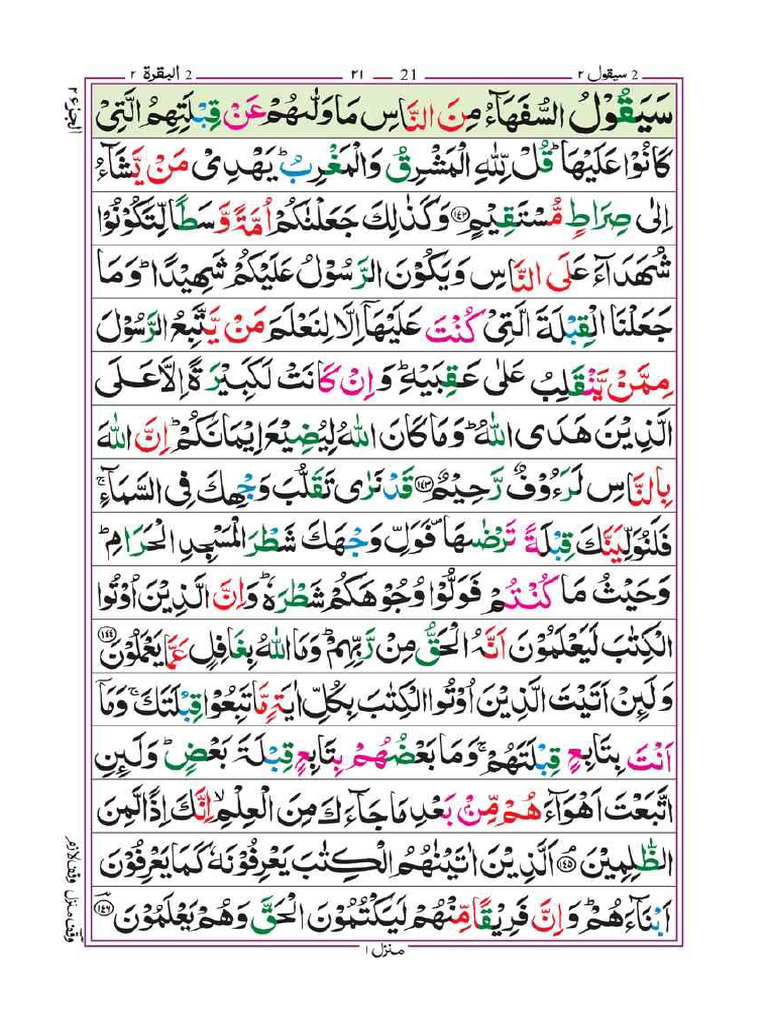 2 البقرة ٢ ٢١ — 21 2 سيقول ٢
الجزء ٢
سَيَقُوْلُ السُّفَهَآءُ مِنَ النَّاسِ مَا وَلّٰىهُمْ عَنْ قِبْلَتِهِمُ الَّتِيْ
كَانُوْا عَلَيْهَا ؕ قُلْ لِّلّٰهِ الْمَشْرِقُ وَالْمَغْرِبُ ؕ يَهْدِيْ مَنْ يَّشَآءُ
اِلٰى صِرَاطٍ مُّسْتَقِيْمٍ ﴿١٤٢﴾ وَكَذٰلِكَ جَعَلْنٰكُمْ اُمَّةً وَّسَطًا لِّتَكُوْنُوْا
شُهَدَآءَ عَلَى النَّاسِ وَيَكُوْنَ الرَّسُوْلُ عَلَيْكُمْ شَهِيْدًا ؕ وَمَا
جَعَلْنَا الْقِبْلَةَ الَّتِيْ كُنْتَ عَلَيْهَآ اِلَّا لِنَعْلَمَ مَنْ يَّتَّبِعُ الرَّسُوْلَ
مِمَّنْ يَّنْقَلِبُ عَلٰى عَقِبَيْهِ ؕ وَاِنْ كَانَتْ لَكَبِيْرَةً اِلَّا عَلَى
الَّذِيْنَ هَدَى اللّٰهُ ؕ وَمَا كَانَ اللّٰهُ لِيُضِيْعَ اِيْمَانَكُمْ ؕ اِنَّ اللّٰهَ
بِالنَّاسِ لَرَءُوْفٌ رَّحِيْمٌ ﴿١٤٣﴾ قَدْ نَرٰى تَقَلُّبَ وَجْهِكَ فِي السَّمَآءِ ۚ
فَلَنُوَلِّيَنَّكَ قِبْلَةً تَرْضٰىهَا ۪ فَوَلِّ وَجْهَكَ شَطْرَ الْمَسْجِدِ الْحَرَامِ ؕ
وَحَيْثُ مَا كُنْتُمْ فَوَلُّوْا وُجُوْهَكُمْ شَطْرَهٗ ؕ وَاِنَّ الَّذِيْنَ اُوْتُوا
الْكِتٰبَ لَيَعْلَمُوْنَ اَنَّهُ الْحَقُّ مِنْ رَّبِّهِمْ ؕ وَمَا اللّٰهُ بِغَافِلٍ عَمَّا يَعْمَلُوْنَ ﴿١٤٤﴾
وَلَئِنْ اَتَيْتَ الَّذِيْنَ اُوْتُوا الْكِتٰبَ بِكُلِّ اٰيَةٍ مَّا تَبِعُوْا قِبْلَتَكَ ۚ وَمَآ
اَنْتَ بِتَابِعٍ قِبْلَتَهُمْ ۚ وَمَا بَعْضُهُمْ بِتَابِعٍ قِبْلَةَ بَعْضٍ ؕ وَلَئِنِ
اتَّبَعْتَ اَهْوَآءَهُمْ مِّنْۢ بَعْدِ مَا جَآءَكَ مِنَ الْعِلْمِ ۙ اِنَّكَ اِذًا لَّمِنَ
الظّٰلِمِيْنَ ﴿١٤٥﴾ اَلَّذِيْنَ اٰتَيْنٰهُمُ الْكِتٰبَ يَعْرِفُوْنَهٗ كَمَا يَعْرِفُوْنَ
اَبْنَآءَهُمْ ؕ وَاِنَّ فَرِيْقًا مِّنْهُمْ لَيَكْتُمُوْنَ الْحَقَّ وَهُمْ يَعْلَمُوْنَ ﴿١٤٦﴾
وقف لازم
وقف منزل
منزل ١